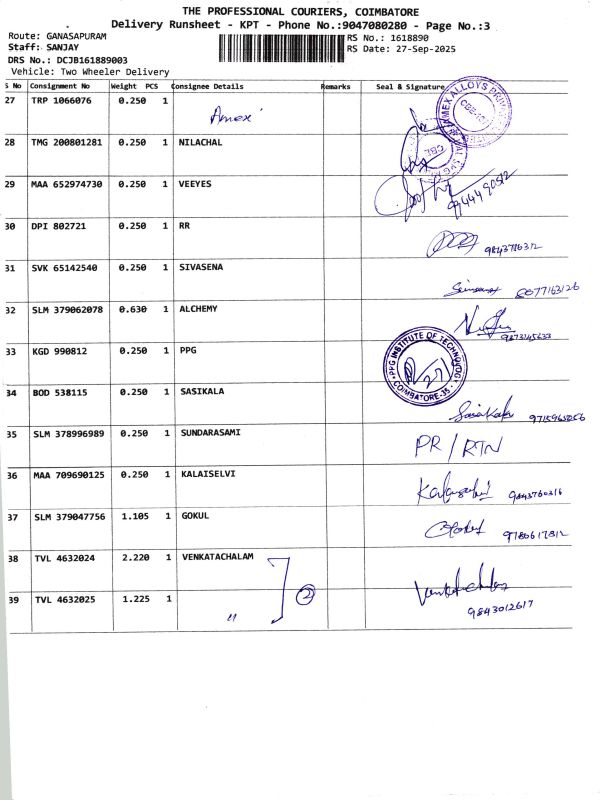 THE PROFESSIONAL COURIERS, COIMBATORE
Delivery Runsheet - KPT - Phone No.:9047080280 - Page No.:3
Route: GANASAPURAM
RS No.: 1618890
Staff: SANJAY
RS Date: 27-Sep-2025
DRS No.: DCJB161889003
Vehicle: Two Wheeler Delivery
S No Consignment No Weight PCS Consignee Details Remarks Seal & Signature
27 TRP 1066076 0.250 1 Amex
AMEX ALLOYS
28 TMG 200801281 0.250 1 NILACHAL
CBE
29 MAA 652974730 0.250 1 VEEYES
30 DPI 802721 0.250 1 RR
31 SVK 65142540 0.250 1 SIVASENA
32 SLM 379062078 0.630 1 ALCHEMY
33 KGD 990812 0.250 1 PPG
PPG INSTITUTE OF TECHNOLOGY
COIMBATORE-35
34 BOD 538115 0.250 1 SASIKALA
Sasikala 9715963056
35 SLM 378996989 0.250 1 SUNDARASAMI PR/RTN
36 MAA 709690125 0.250 1 KALAISELVI
9843760316
37 SLM 379047756 1.105 1 GOKUL
38 TVL 4632024 2.220 1 VENKATACHALAM
Venkatachalam
39 TVL 4632025 1.225 1 " 2
9843012617